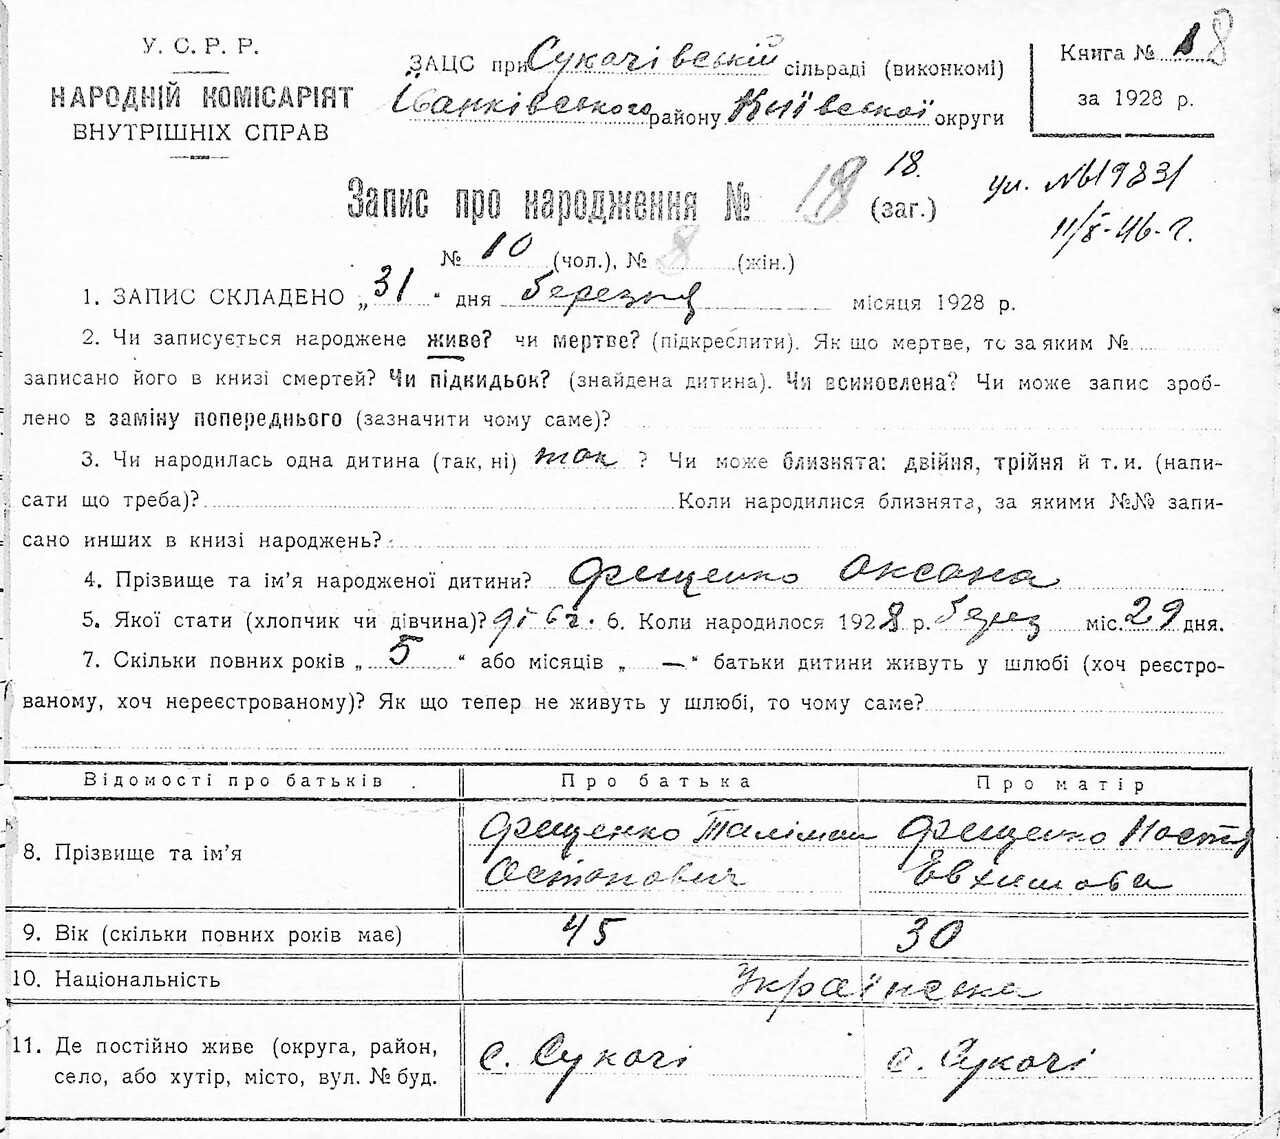 У. С. Р. Р.
НАРОДНІЙ КОМІСАРІЯТ
ВНУТРІШНІХ СПРАВ
ЗАЦС при Сукачівській сільраді (виконкомі)
Іванківського району Київської округи
Книга № 18
за 1928 р.
Запис про народження № 18 18. (заг.)
ул. №
11/X-46-г.
№ 10 (чол.), № 8 (жін.)
1. ЗАПИС СКЛАДЕНО „31" дня березня місяця 1928 р.
2. Чи записується народжене живе? чи мертве? (підкреслити). Як що мертве, то за яким №
записано його в книзі смертей? Чи підкидьок? (знайдена дитина). Чи всиновлена? Чи може запис зроб-
лено в заміну попереднього (зазначити чому саме)?
3. Чи народилась одна дитина (так, ні) так ? Чи може близнята: двійня, трійня й т. и. (напи-
сати що треба)? Коли народилися близнята, за якими №№ запи-
сано инших в книзі народжень?
4. Прізвище та ім'я народженої дитини? Фещенко Оксана
5. Якої стати (хлопчик чи дівчина)? дівч. 6. Коли народилося 1928 р. берез міс. 29 дня.
7. Скільки повних років „ 5 " або місяців „ — " батьки дитини живуть у шлюбі (хоч реєстро-
ваному, хоч нереєстрованому)? Як що тепер не живуть у шлюбі, то чому саме?
Відомості про батьків Про батька Про матір
8. Прізвище та ім'я Фещенко Таліман Остапович Фещенко Настя Евхимова
9. Вік (скільки повних років має) 45 30
10. Національність Українська
11. Де постійно живе (округа, район, с. Сукачі с. Сукачі
село, або хутір, місто, вул. № буд.